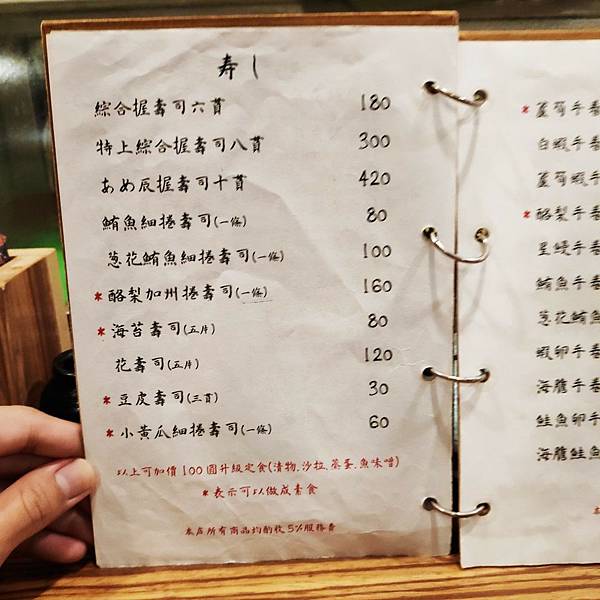 寿し
綜合握壽司六貫 180
特上綜合握壽司八貫 300
あめ辰握壽司十貫 420
鮪魚細捲壽司(一條) 80
蔥花鮪魚細捲壽司(一條) 100
*酪梨加州捲壽司(一條) 160
*海苔壽司(五片) 80
花壽司(五片) 120
*豆皮壽司(三貫) 30
*小黃瓜細捲壽司(一條) 60
以上可加價100圓升級定食(漬物.沙拉.蒸蛋.魚味噌)
*表示可以做成素食
本店所有商品均酌收5%服務費
*蘆筍手卷
白蝦手卷
蘆筍蝦手卷
*酪梨手卷
星鰻手卷
鮪魚手卷
蔥花鮪魚
蝦卵手卷
海膽手卷
鮭魚卵手
海膽鮭魚